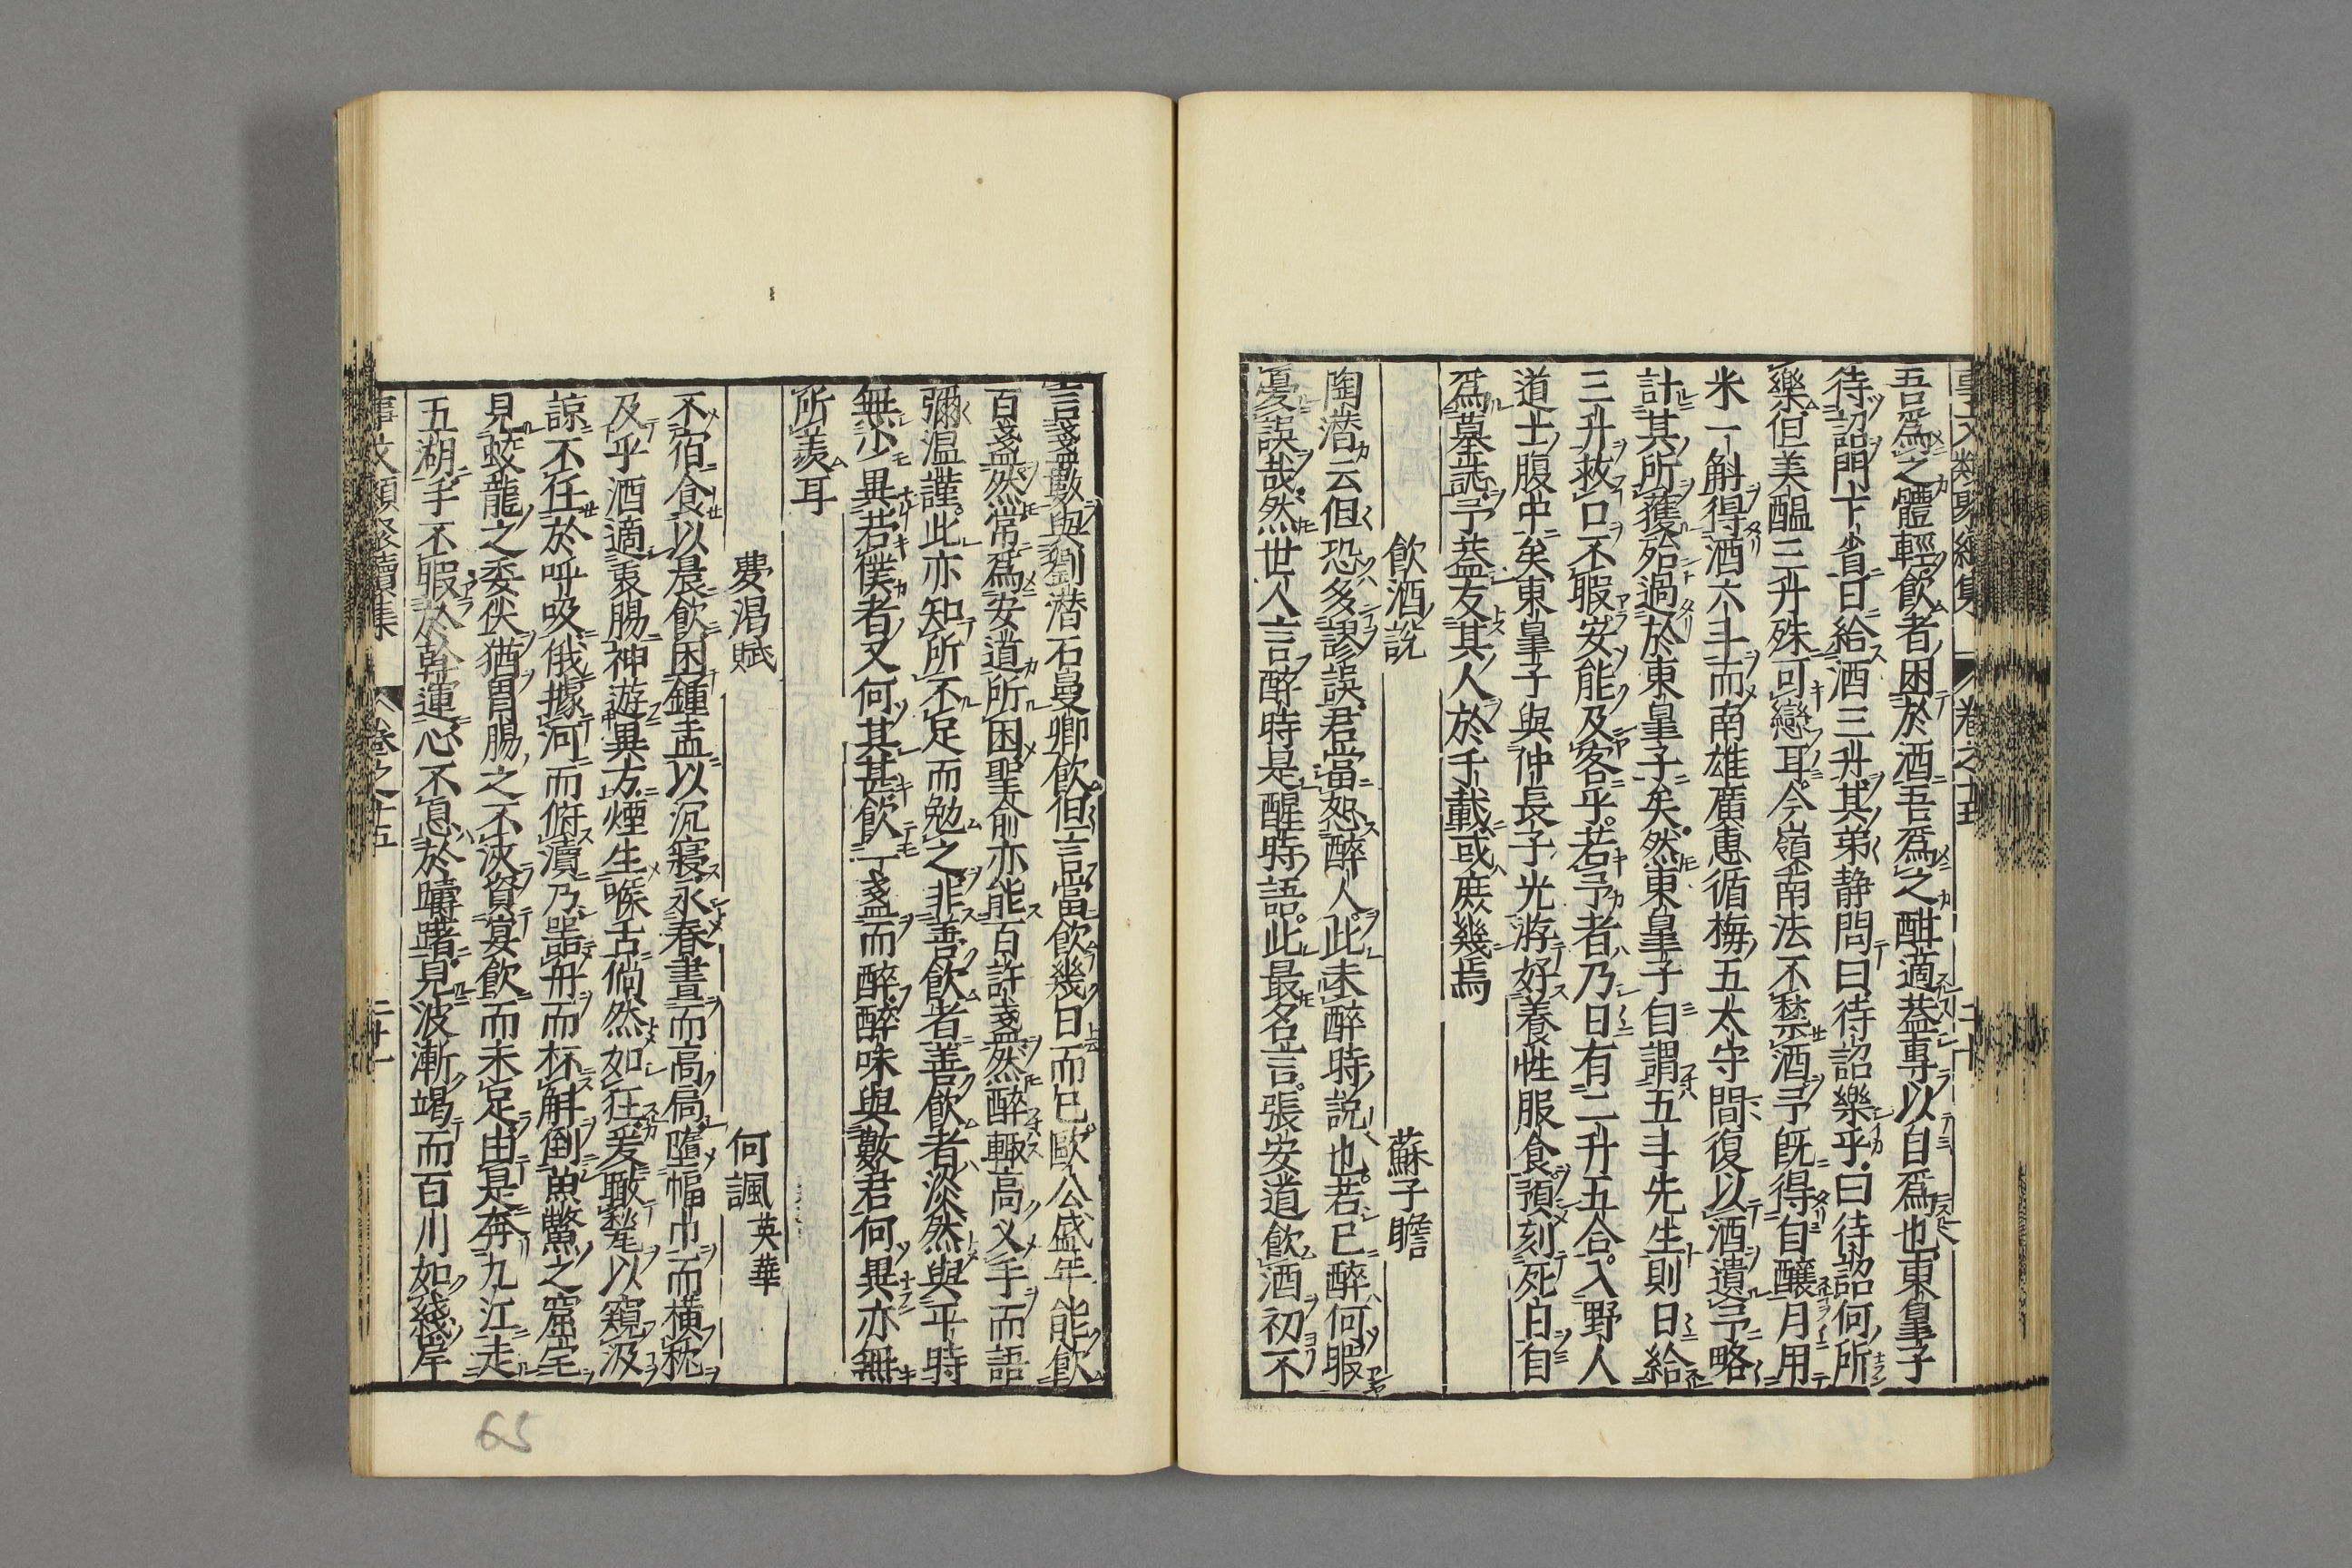 吾爲之體輕飲者困於酒吾爲之酣適蓋專以自爲也東皇子
待詔門下省日給酒三升其弟靜問曰待詔樂乎曰待詔何所
樂但美醞三升殊可戀耳今嶺南法不禁酒予既得自釀月用
米一斛得酒六斗而南雄廣惠循梅五太守間復以酒遺予略
計其所獲殆過於東皇子矣然東皇子自謂五斗先生則日給
三升救口不暇安能及客乎若予者乃日有二升五合入野人
道士腹中矣東皇子與仲長子光游好養性服食預刻死日自
爲墓誌予蓋友其人於千載或庶幾焉
飲酒說 蘇子瞻
陶潛云但恐多謬誤君當恕醉人此未醉時說也若已醉何暇
憂誤哉然世人言醉時是醒時語此最名言張安道飲酒初不
言盞數與劉潛石曼卿飲但言當飲幾日而已歐公盛年能飲
百盞然常爲安道所困聖俞亦能百許盞然醉輙高义手而語
彌溫謹此亦知所不足而勉之非善飲者善飲者淡然與平時
無少異若僕者又何其甚飲一盞而醉醉味與數君何異亦無
所羨耳
夢渇賦 何諷 英華
不宿食以晨飲困鍾盂以沉寢永春晝而高扃墮幅巾而橫枕
及乎酒適東腸神遊異方煙生喉舌倘然如狂爰輙鼇以窺汲
諒不任於呼吸俄據河而俯瀆乃噐舟而杯斛倒魚鱉之窟宅
見蛟龍之委伏猶胃腸之不浹資宴飲而未足由是奔九江走
五湖手不暇於斡運心不息於躊躇見波漸竭而百川如綫岸
事文類聚續集 卷之十五 二十一
65